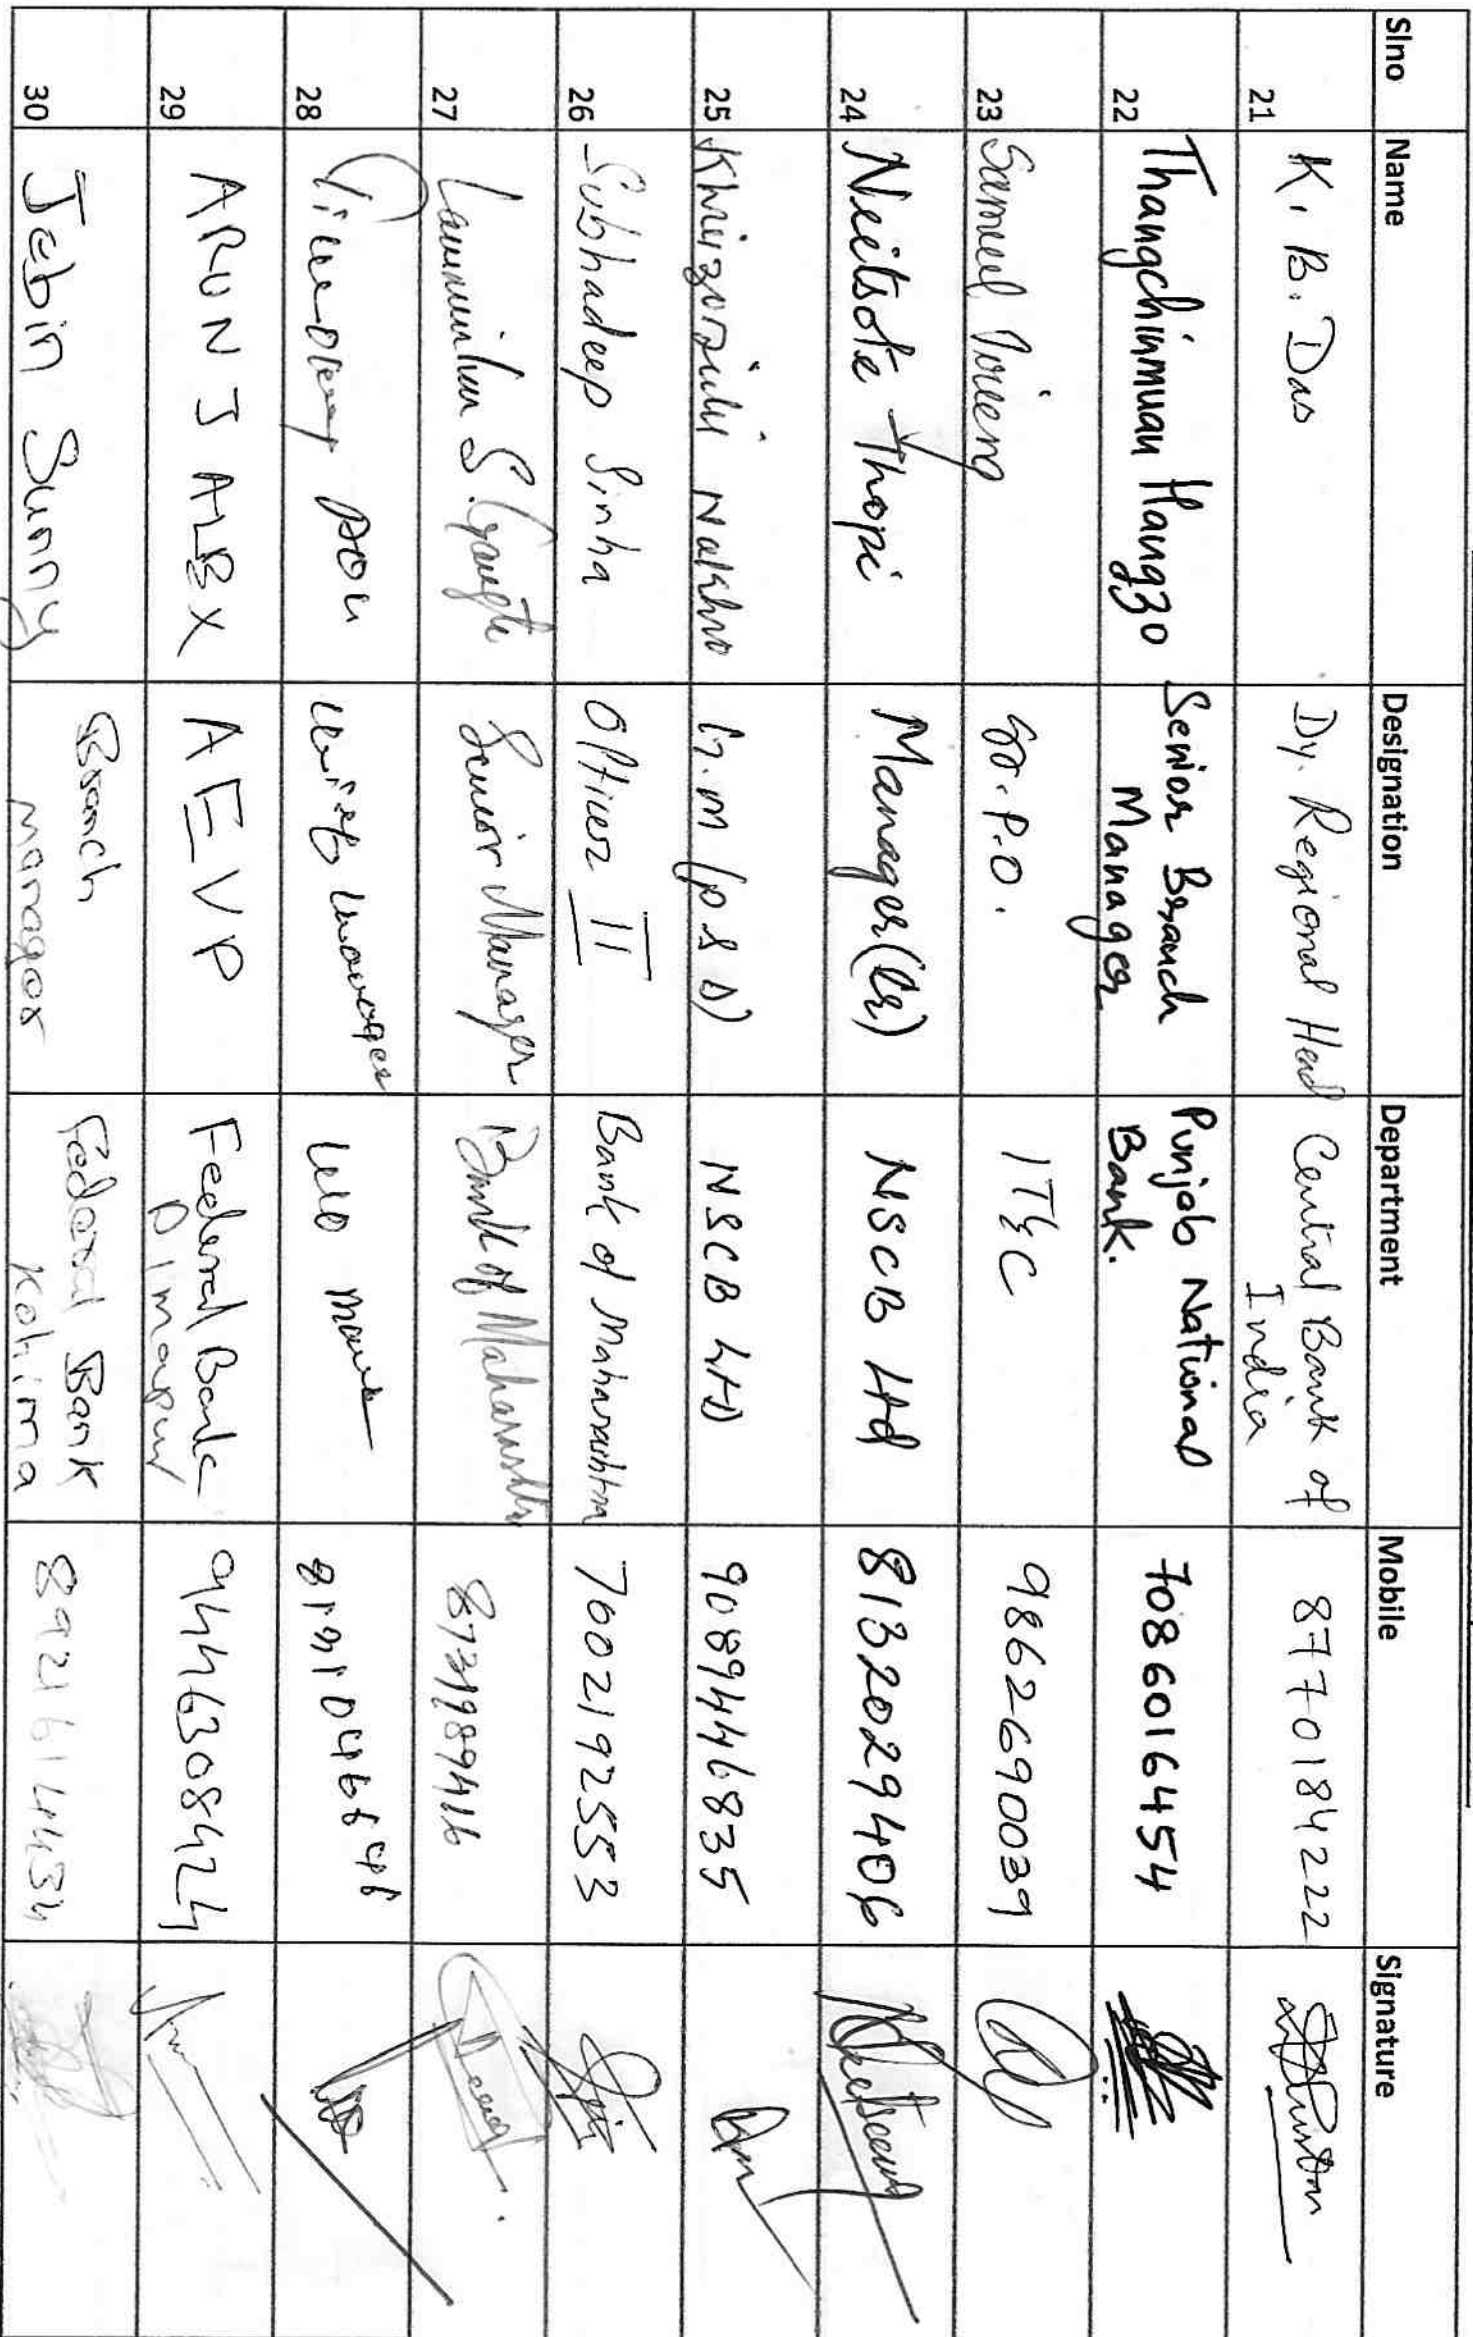 Slno Name Designation Department Mobile Signature
21 K. B. Das Dy. Regional Head Central Bank of
India 8770184222
22 Thangchinmuan Hangzo Senior Branch
Manager Punjab National
Bank. 7086016454
23 Samuel Sr. P.O. IT&C 9862690039
24 Neitsote Thopi Manager NSCB Ltd 8132029406
25 Nakhro NSCB LTD 9089446835
26 Subhadeep Sinha Officer II Bank of Maharashtra 7002192553
27 Senior Manager Bank of Maharashtra
28
29 ARUN J ALEX AEVP Federal Bank
Dimapur 9446308424
30 Jebin Sunny Branch
Manager Federal Bank
Kohima 8921614434